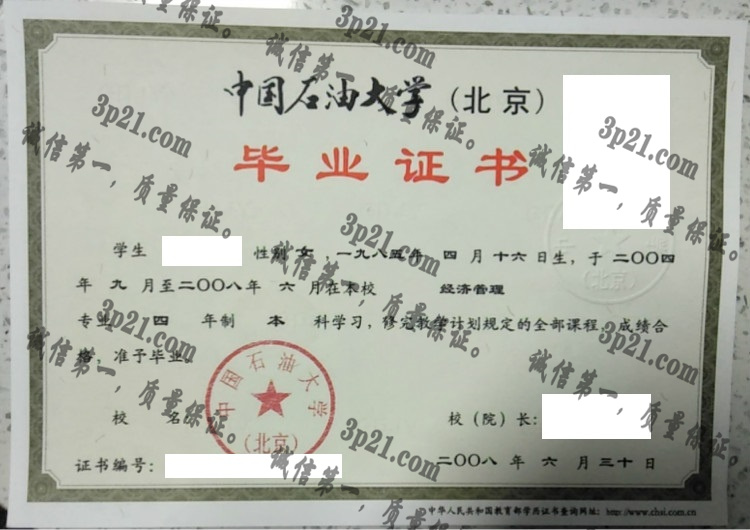 中国石油大学（北京）
毕业证书
学生 性别 女，一九八五年 四 月 十六 日生，于 二〇〇四
年 九 月至二〇〇八年 六 月在本校 经济管理
专业 四 年制 本 科学习，修完教学计划规定的全部课程，成绩合
格，准予毕业。
中国石油大学
（北京）
（北京）
校 名： 校（院）长：
证书编号： 二〇〇八 年 六 月 三十 日
中华人民共和国教育部学历证书查询网址：http://www.chsi.com.cn
3p21.com
诚信第一，质量保证。
3p21.com
诚信第一，质量保证。
3p21.com
诚信第一，质量保证。
3p21.com
诚信第一，质量保证。
3p21.com
诚信第一，质量保证。
3p21.com
诚信第一，质量保证。
3p21.com
诚信第一，质量保证。